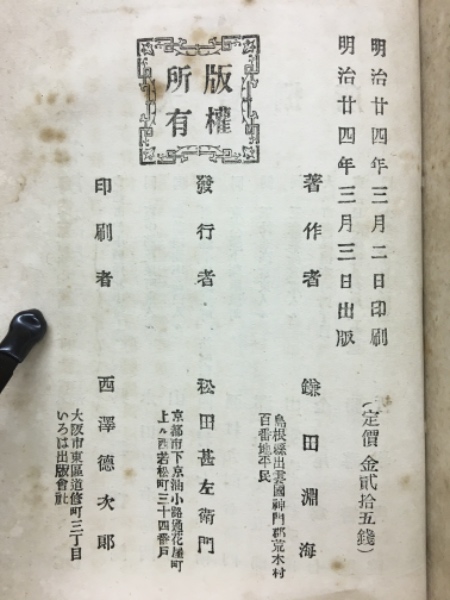 明治廿四年三月二日印刷
明治廿四年三月三日出版
(定價 金貳拾五錢)
版權
所有
著作者 鎌田淵海
島根縣出雲國神門郡荒木村
百番地平民
發行者 松田甚左衛門
京都市下京油小路通花屋町
上ル西若松町三十四番戸
印刷者 西澤德次郎
大阪市東區道修町三丁目
いろは出版會社